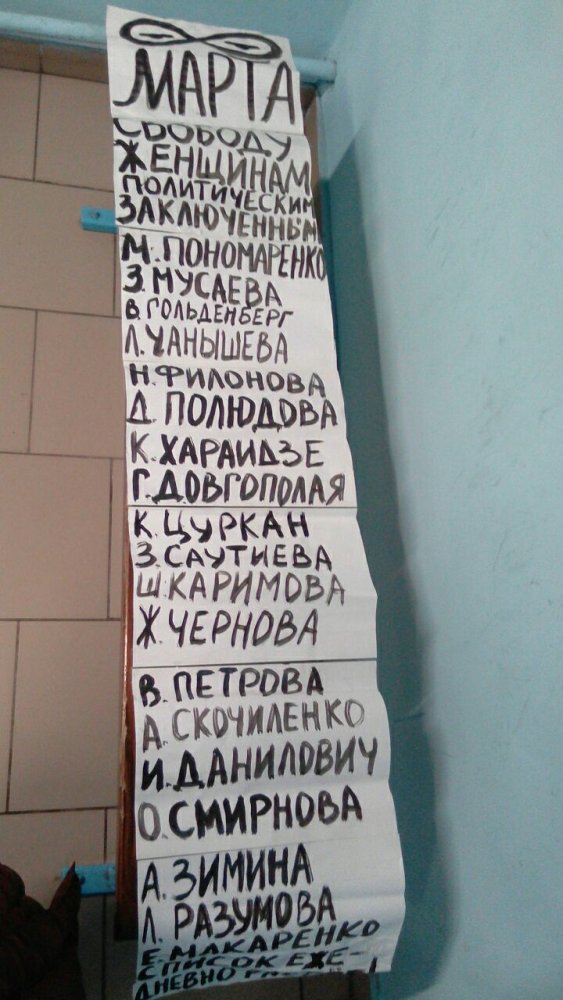 8 МАРТА
СВОБОДУ
ЖЕНЩИНАМ
ПОЛИТИЧЕСКИМ
ЗАКЛЮЧЕННЫМ
М. ПОНОМАРЕНКО
З. МУСАЕВА
В. ГОЛЬДЕНБЕРГ
Л. ЧАНЫШЕВА
Н. ФИЛОНОВА
Д. ПОЛЮДОВА
К. ХАРАИДЗЕ
Г. ДОВГОПОЛАЯ
К. ЦУРКАН
З. САУТИЕВА
Ш. КАРИМОВА
Ж. ЧЕРНОВА
В. ПЕТРОВА
А. СКОЧИЛЕНКО
И. ДАНИЛОВИЧ
О. СМИРНОВА
А. ЗИМИНА
Л. РАЗУМОВА
Е. МАКАРЕНКО
СПИСОК ЕЖЕ-
ДНЕВНО